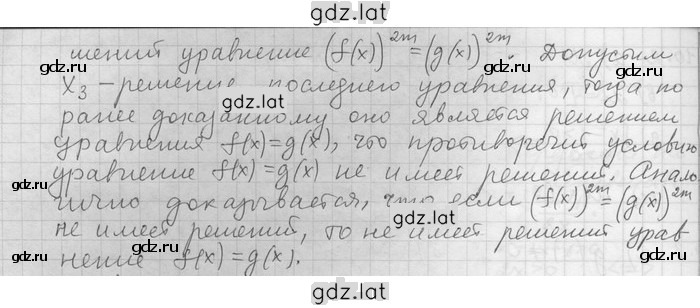 gdz.lat
шений уравнение (f(x))^2m = (g(x))^2m. Допустим
gdz.lat
gdz.lat
x₃ – решение последнего уравнения, тогда по
gdz.lat
ранее доказанному оно является решением
уравнения f(x)=g(x), что противоречит условию
уравнение f(x)=g(x) не имеет решений. Анало
гично доказывается, что если (f(x))^2m = (g(x))^2m
gdz.lat
не имеет решений, то не имеет решений урав
gdz.lat
gdz.lat
нение f(x)=g(x).
gdz.lat